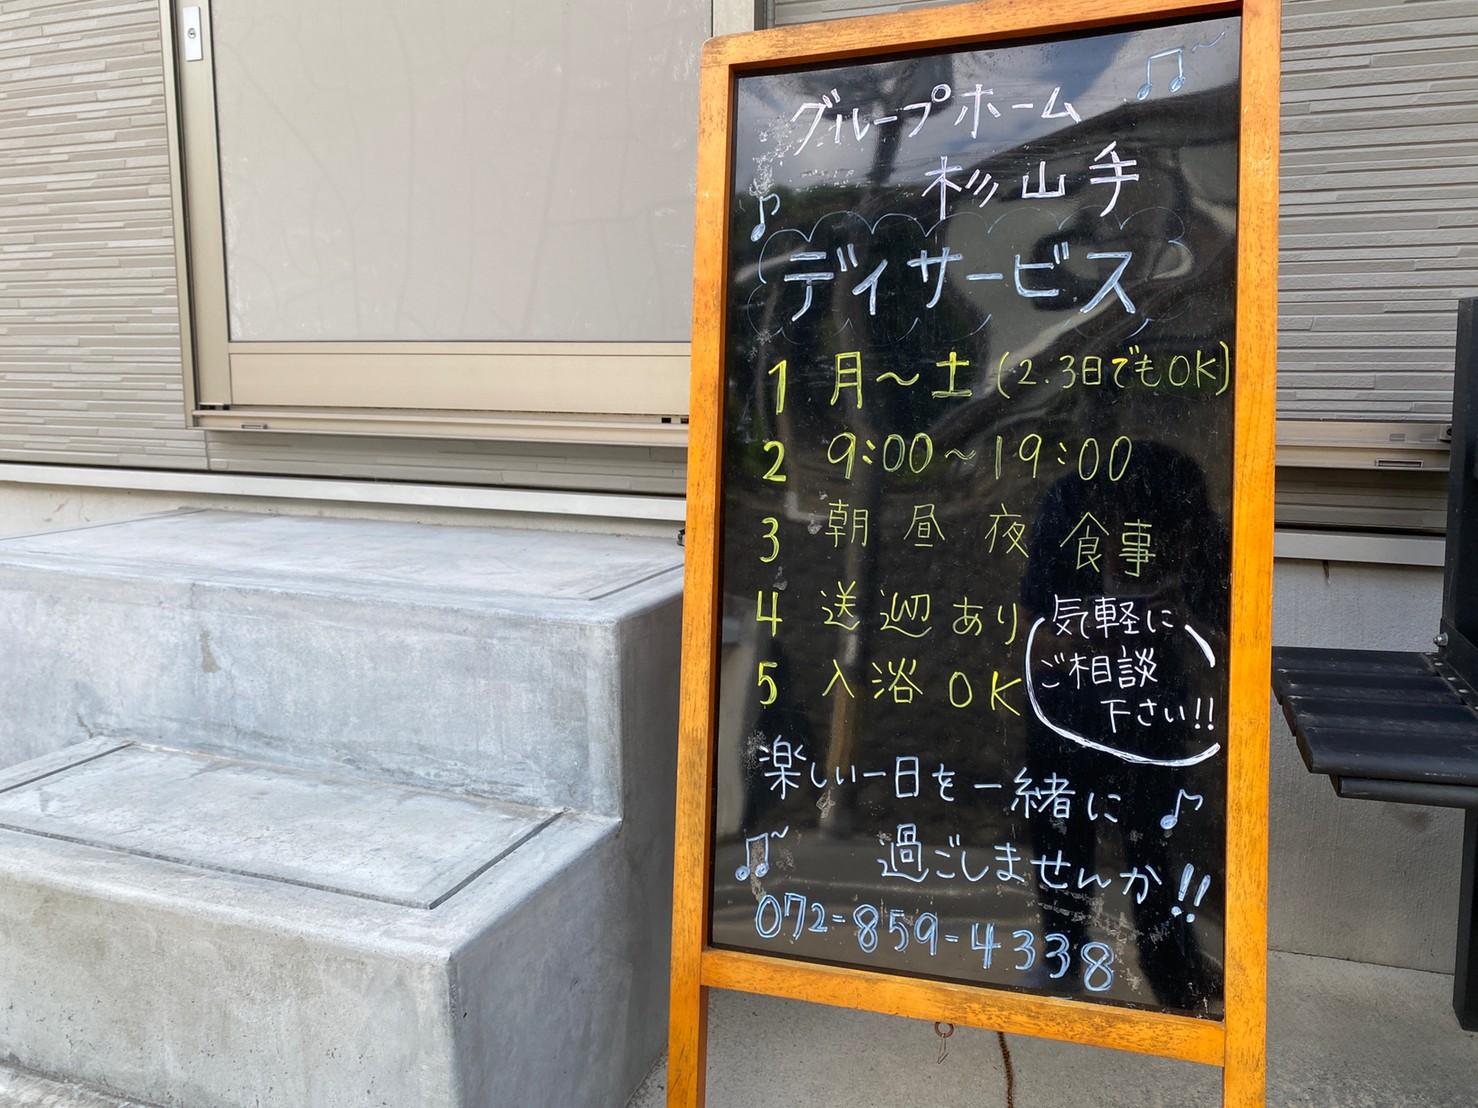 グループホーム
杉山手
デイサービス
1 月～土(2.3日でもOK)
2 9:00～19:00
3 朝 昼 夜 食事
4 送迎あり
5 入浴 OK
気軽に
ご相談
下さい!!
楽しい一日を一緒に
過ごしませんか!!
072-859-4338